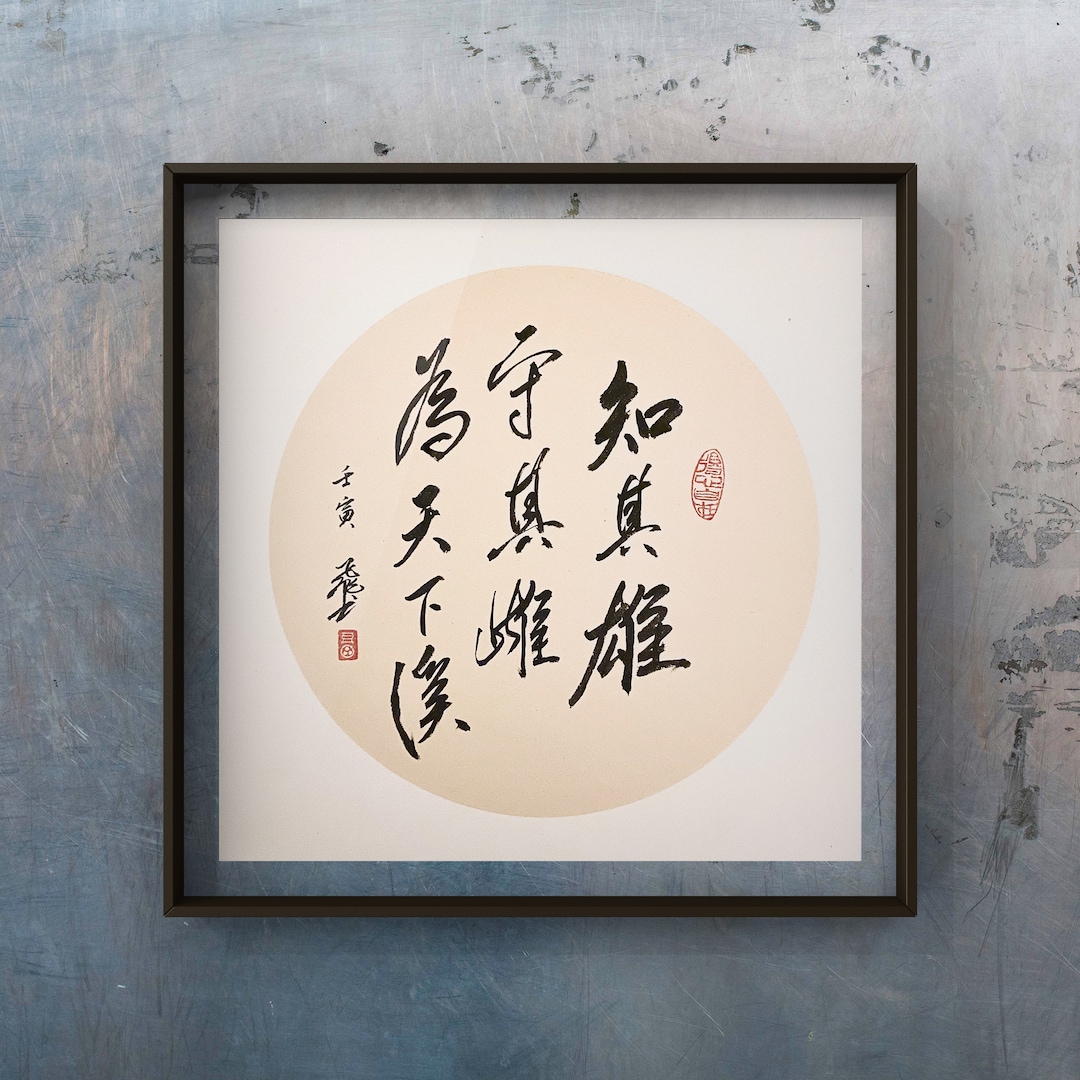 知其雄
守其雌
為天下溪
壬寅